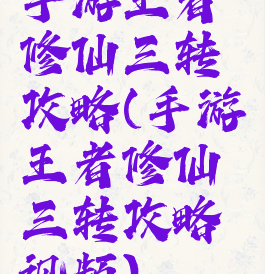 手游王者
修仙三转
攻略(手游
王者修仙
三转攻略
视频)